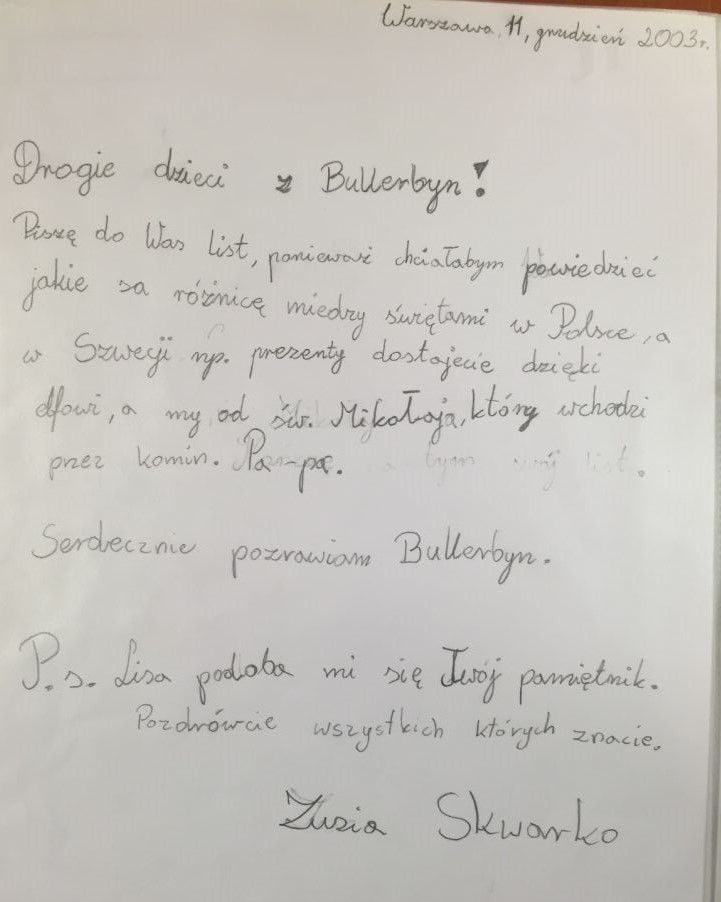 Warszawa, 11, grudzień 2003r.
Drogie dzieci z Bullerbyn!
Piszę do Was list, ponieważ chciałabym powiedzieć
jakie sa różnicę miedzy świętami w Polsce, a
w Szwecji np. prezenty dostajecie dzięki
elfowi, a my od św. Mikołaja, który wchodzi
przez komin. Pa-pa. tym mój list.
Serdecznie pozrawiam Bullerbyn.
P.s. Lisa podoba mi się Twój pamiętnik.
Pozdrówcie wszystkich których znacie.
Zuzia Skwarko